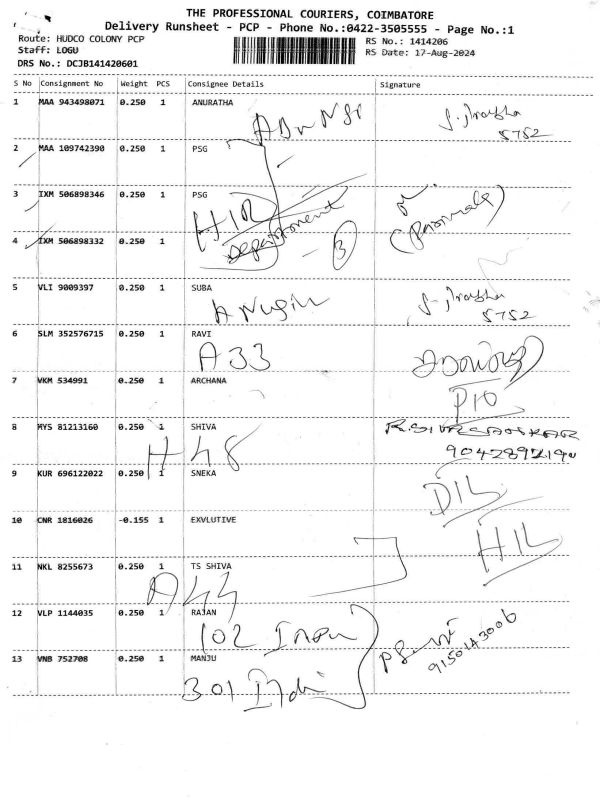 THE PROFESSIONAL COURIERS, COIMBATORE
Delivery Runsheet - PCP - Phone No.:0422-3505555 - Page No.:1
Route: HUDCO COLONY PCP
RS No.: 1414206
Staff: LOGU
RS Date: 17-Aug-2024
DRS No.: DCJB141420601
S No Consignment No Weight PCS Consignee Details Signature
1 MAA 943498071 0.250 1 ANURATHA
5752
2 MAA 109742390 0.250 1 PSG
3 IXM 506898346 0.250 1 PSG
HIR
Department
4 IXM 506898332 0.250 1
3
5 VLI 9009397 0.250 1 SUBA
5752
6 SLM 352576715 0.250 1 RAVI
A 33
7 VKM 534991 0.250 1 ARCHANA
P10
8 MYS 81213160 0.250 1 SHIVA
H 48
9 KUR 696122022 0.250 1 SNEKA
DIL
10 CNR 1816026 -0.155 1 EXVLUTIVE
HIL
11 NKL 8255673 0.250 1 TS SHIVA
A 44
12 VLP 1144035 0.250 1 RAJAN
102
9150143006
13 VNB 752708 0.250 1 MANJU
301